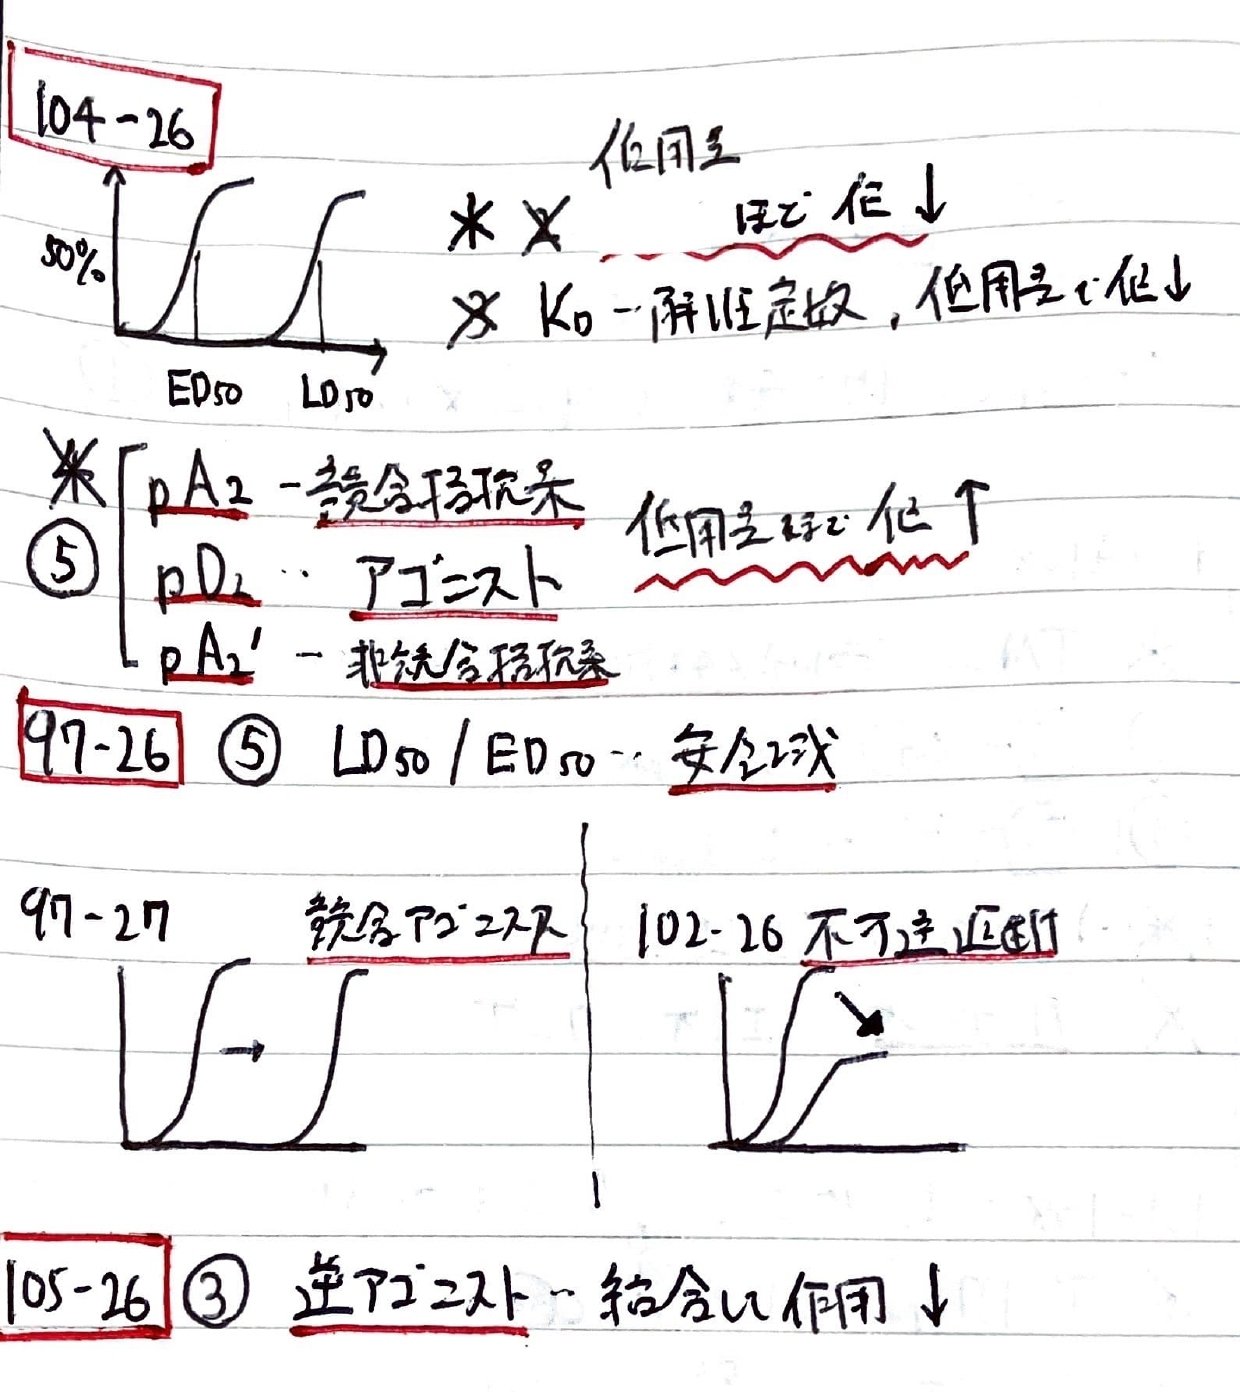 104-26
低用量
50%
※ ※ ほど値↓
※ KD - 解離定数, 低用量で値↓
ED50 LD50
※ pA2 - 競合拮抗薬
低用量ほど値↑
⑤ pD2 ‥ アゴニスト
pA2' - 非競合拮抗薬
97-26 ⑤ LD50 / ED50 ‥ 安全域
97-27 競合アゴニスト
102-26 不可逆遮断
105-26 ③ 逆アゴニスト ‥ 結合して作用↓